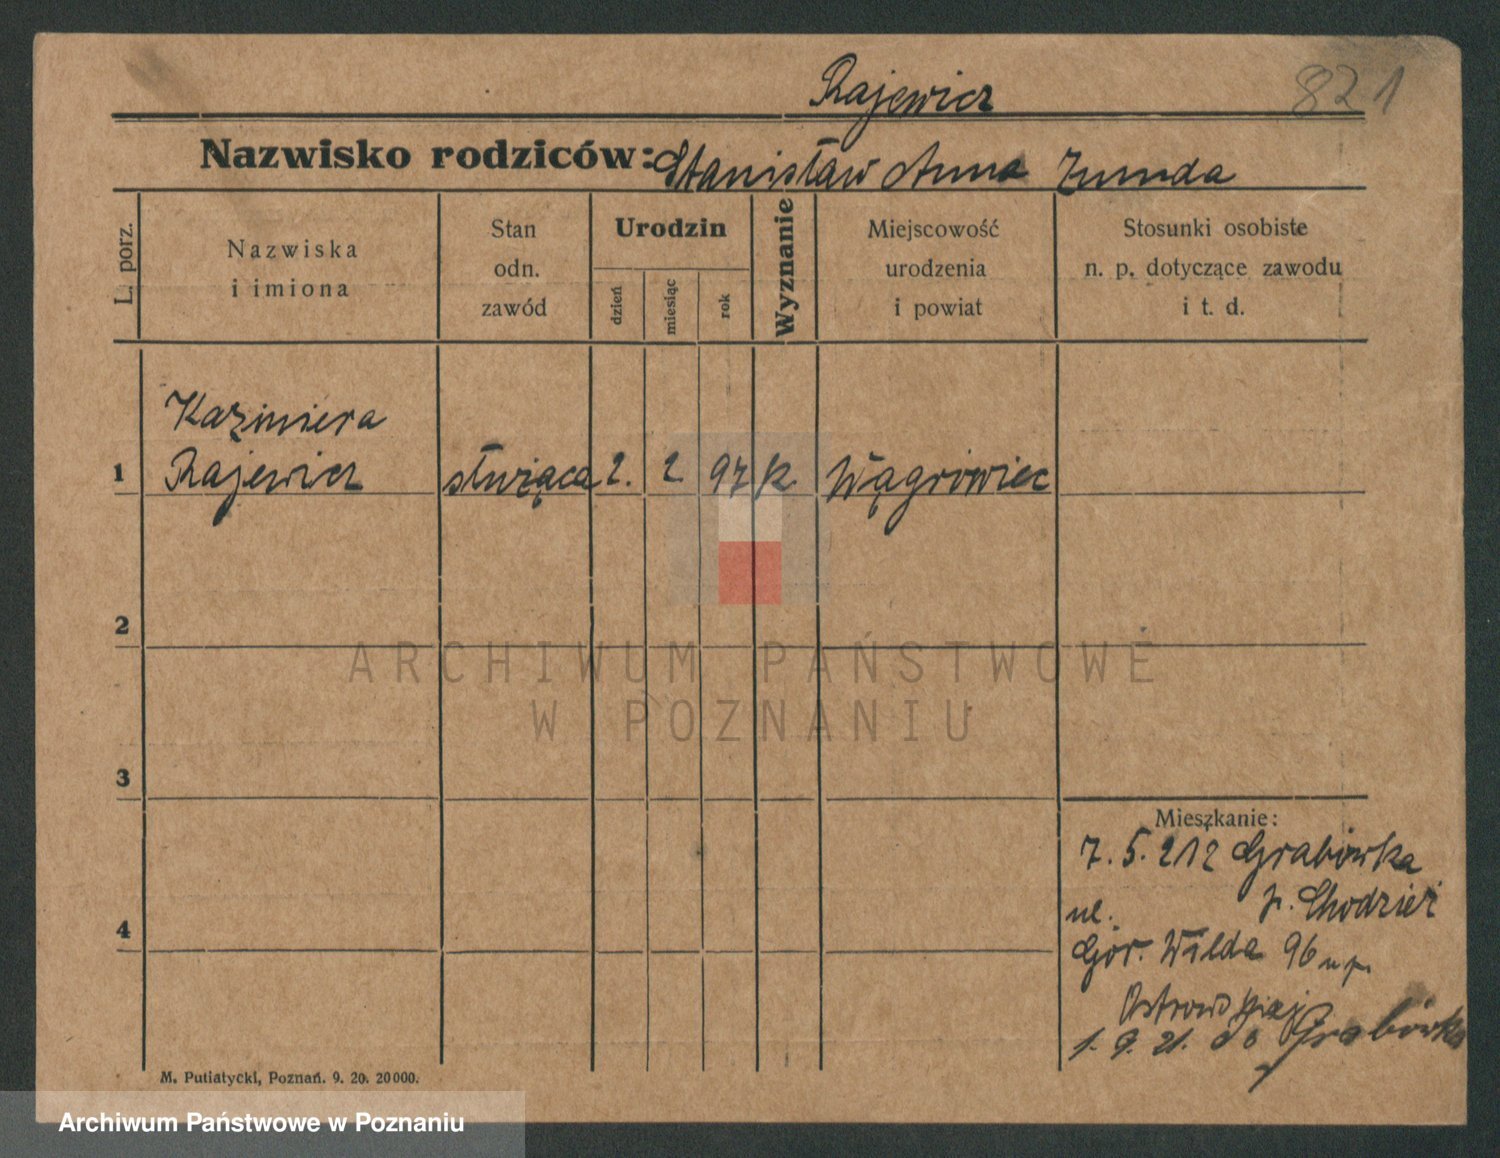 Rajewicz
821
Nazwisko rodziców: Stanisław Anna Zmuda
L. porz.
Nazwiska
i imiona
Stan
odn.
zawód
Urodzin
dzień
miesiąc
rok
Wyznanie
Miejscowość
urodzenia
i powiat
Stosunki osobiste
n. p. dotyczące zawodu
i t. d.
Kazimiera
1 Rajewicz służąca 2. 2 97 k. Wągrówiec
2
ARCHIWUM PAŃSTWOWE
W POZNANIU
3
Mieszkanie:
7. 5. 212 Grabówka
ul. p. Chodzież
4
Gór. Wilda 96 u p.
1. 9. 21. do Grabówka
M. Putiatycki, Poznań. 9. 20. 20000.
Archiwum Państwowe w Poznaniu